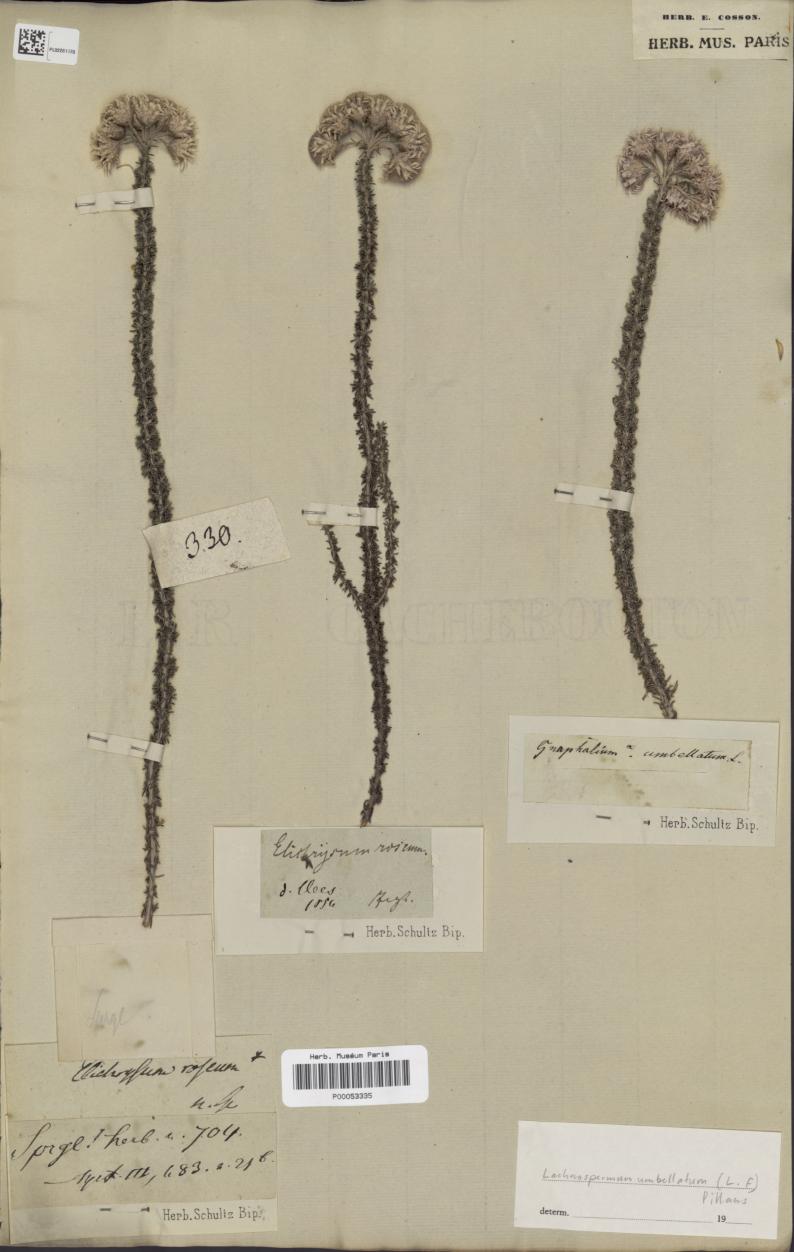 HERB. E. COSSON.
HERB. MUS. PARIS
330.
Gnaphalium umbellatum. L.
Herb. Schultz Bip.
Elichrysum roseum.
d. Nees
Herb. Schultz Bip.
Sprgl.
Elichrysum roseum
n. Sp
Sprgl! herb. n. 704.
Syst. III, 483. n. 21
Herb. Schultz Bip.
Herb. Muséum Paris
P00053335
Lachnospermum umbellatum (L. f)
Pillans
determ. 19